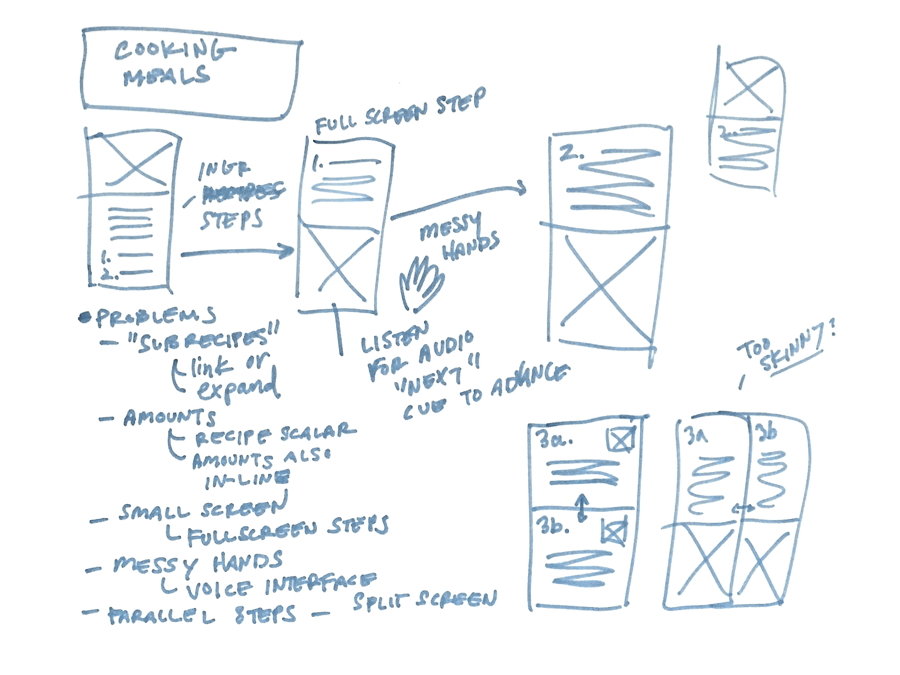 COOKING
MEALS
FULL SCREEN STEP
1.
2.
INGR
STEPS
1.
MESSY
HANDS
LISTEN
FOR AUDIO
"NEXT"
CUE TO ADVANCE
2.
2.
• PROBLEMS
- "SUBRECIPES"
link or
expand
- AMOUNTS
RECIPE SCALAR
AMOUNTS ALSO
IN-LINE
- SMALL SCREEN
FULLSCREEN STEPS
- MESSY HANDS
VOICE INTERFACE
- PARALLEL STEPS - SPLIT SCREEN
TOO
SKINNY?
3a.
3b.
3a
3b